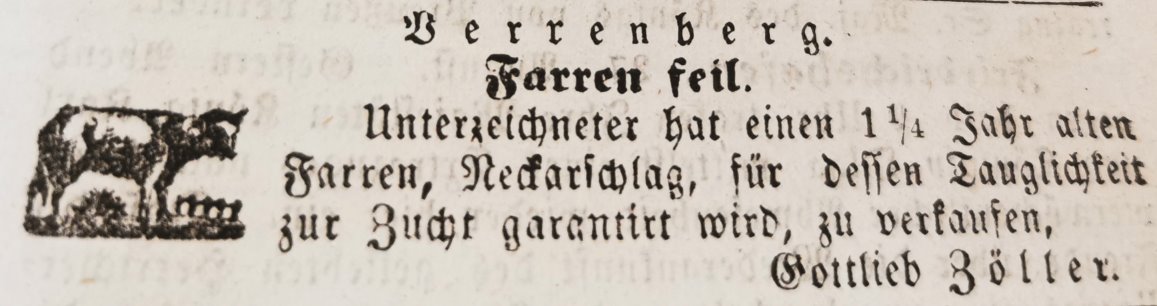 Verrenberg.
Farren feil.
Unterzeichneter hat einen 1 1/4 Jahr alten
Farren, Neckarschlag, für dessen Tauglichkeit
zur Zucht garantirt wird, zu verkaufen,
Gottlieb Zöller.